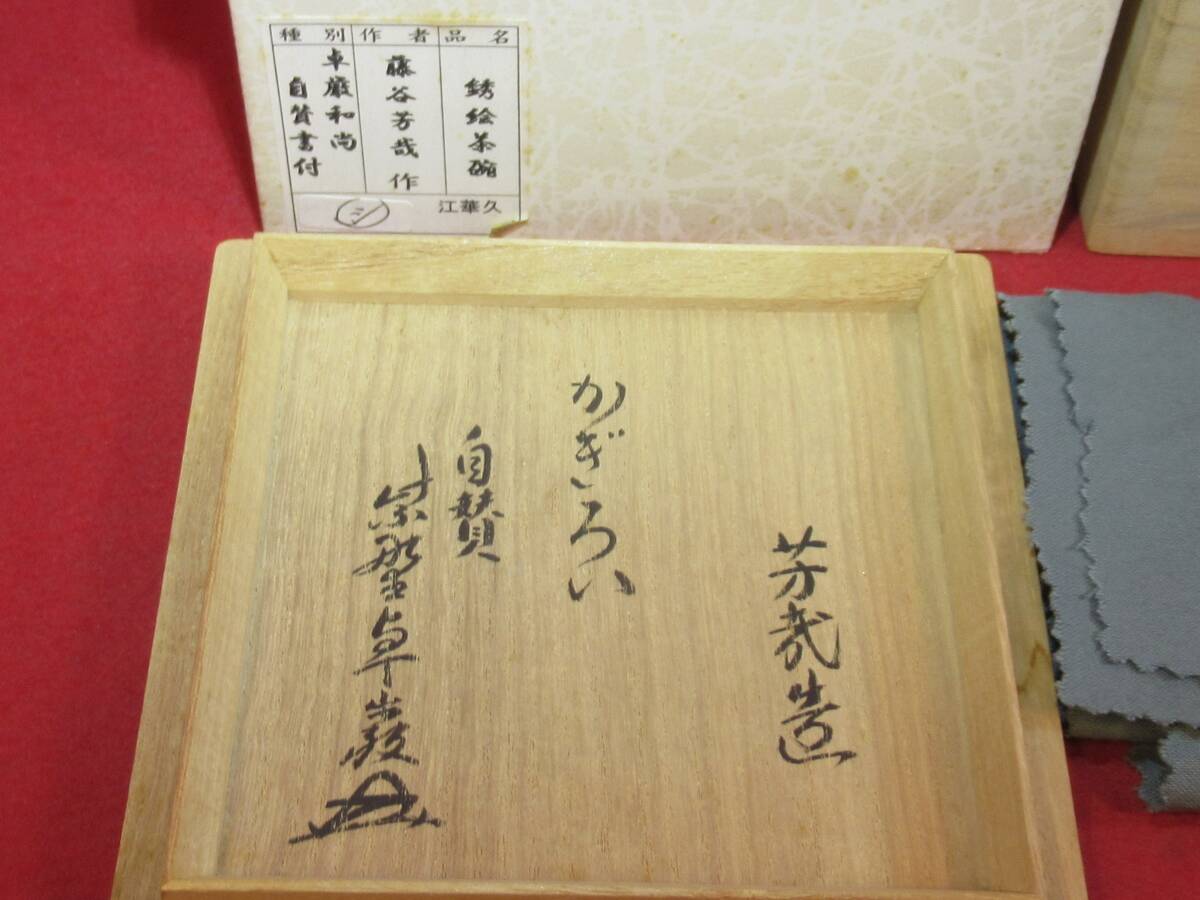 品名
銹絵茶碗
作者
藤谷芳哉 作
種別
卓巌和尚
自賛書付
江華久
シ
芳哉造
かぎろい
自賛
紫野卓巌